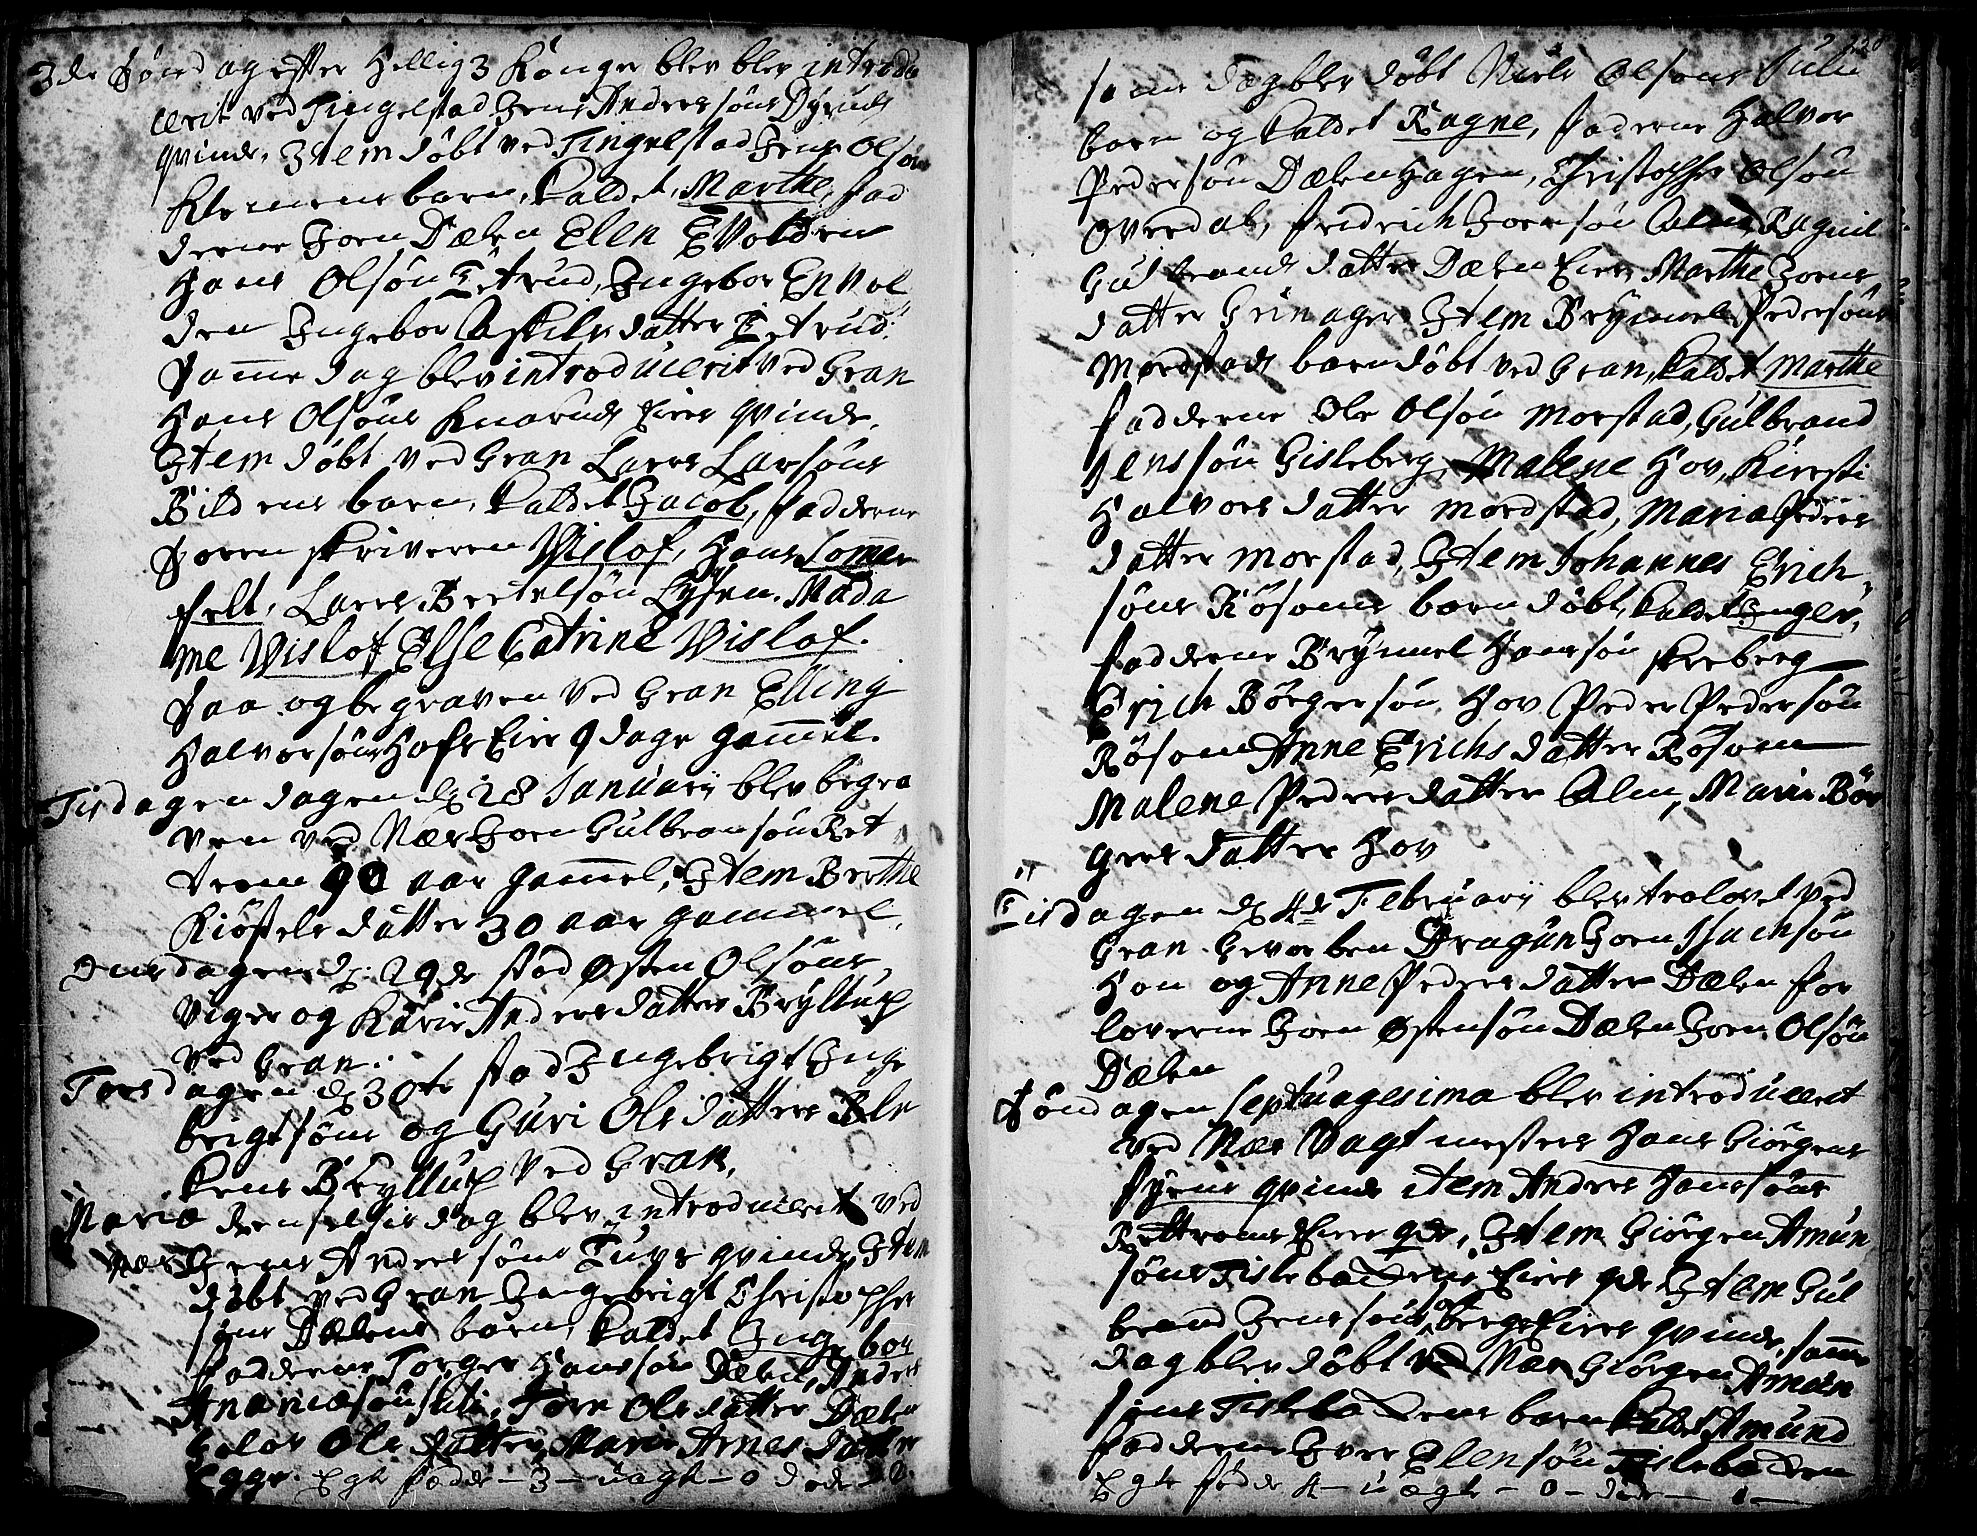 3de Söndag efter Hellig 3 Konger blev blev introdu
cerit ved Tingelstad Jens Andersöns Dyruds
qvinde, Item döbt ved Tingelstad Jens Olsöns
barn, kaldet Marthe, fad
derne Joen Dælen Elen EVolden
Hans Olsön Tetrud, Ingebor EnVol
den Ingebor Askilsdatter Tetrud.
Samme dag blev introducerit ved Gran
Hans Olsöns Knaruds Eies qvinde,
Item döbt ved Gran Lars Larsöns
Bildens barn, kaldet Jacob, fadderne
Soren skriveren Vislof, Hans Somer
felt, Lars Bertelsön Lysen, Mada
me Vislof Else Catrine Vislof.
Saa og begraven ved Gran Elling
Halvorsöns Hofs Eier 9 dage gammel.
Tisdagen dagen d. 28 Januarii blev begra
ven ved Næs Joen Gulbransön Ret
trom 90 aar gammel, Item Berthe
Kiöstelsdatter 30 aar gammel.
Onsdagen d. 29de stod Østen Olsöns
Viger og Karie Andersdatters Bryllup
ved Gran.
Torsdagen d. 30te stod Ingebrigt Inge
brigtsöns og Guri Olsdatters Ble
kens Bryllup ved Gran.
Mariæ Renselsis dag blev introducerit ved
Næs Jens Andersöns Tuvs qvinde, Item
döbt ved Gran Ingebrigt Christopher
söns Dælens barn, kaldet Ingebor
fadderne Torger Hanssön Dælen, Anders
Ananiæsön Torn Olsdatter Dælen
Olsdatter, Marie Arnesdatter
Egge. Egte födde - 3 - uægte - 0 döde - 2.
same dag blev döbt Niels Olsöns
barn og kaldet Ragne, fadderne Halvor
Pedersön Dælenhagen, Christopher Olsön
Overdal, Fredrich Joensön Alm, Ragnil
Gulbrandsdatter Dælen Eier Marthe Joens
datter Grinager, Item Brynnel Pedersöns
Morstads barn döbt ved Gran, kaldet Marthe
fadderne Ole Olsön Morstad, Gulbrand
Jenssön Gisleberg, Malene Hov, Kiersti
Halvorsdatter Mordstad, Maria Peders
datter Morstad, Item Johannes Erich
söns Rösoms barn döbt, kaldet Inger,
fadderne Brynnel Hanssön Skeberg
Erich Börgersön Hov Peder Pedersön
Rösom Anne Erichsdatter Rösom
Malene Pedersdatter Alm, Marie Bör
gersdatter Hov
Tisdagen d. 4de Februarii blev trolovet ved
Gran Gevorben Dragun Joen Isachsön
Hon og Anne Pedersdatter Dælen for
loverne Joen Østensön Dælen Joen Olsön
Dælen
Söndagen Septuagesima blev introducerit
ved Næs Vagtmesters Hans Giörgens
Fyrens qvinde item Anders Hanssöns
Rettroms Eier qde, Item Giörgen Amun
söns Tislebadens Eies qde Item Gul
brand Jenssöns berge Eies qvinde, samme
dag blev döbt ved Næs Giörgen Amun
söns Tislebadens barn kaldet Amund
fadderne Iver Elensön Tislebaden
Egte födde 4 - uægte - 0 - döde - 1 -